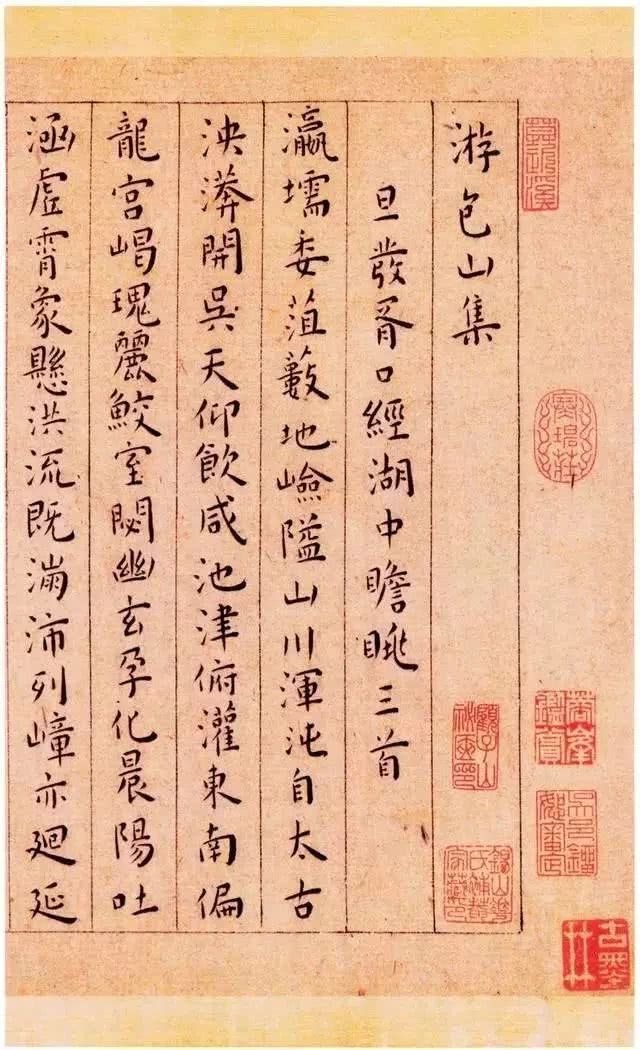 游包山集
旦發胥口經湖中瞻眺三首
瀛壖委菹藪地嶮隘山川渾沌自太古
泱漭開吳天仰飲咸池津俯灌東南偏
龍宮崼瑰麗鮫室閟幽玄孕化晨陽吐
涵虛霄象懸洪流既滿沛列嶂亦廻延